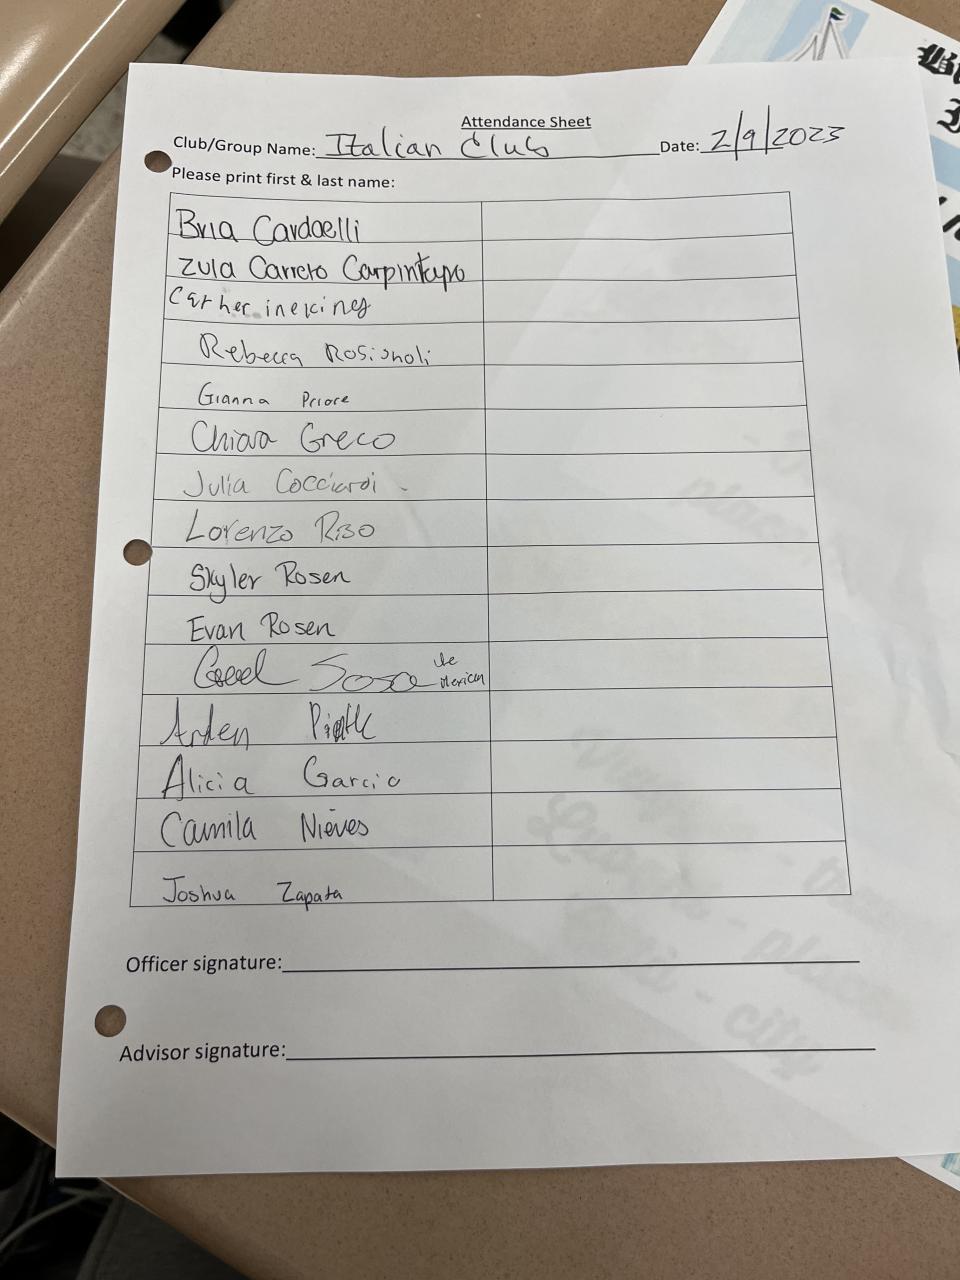 Attendance Sheet
Club/Group Name: Italian Club Date: 2/9/2023
Please print first & last name:
Bria Cardaelli
Zula Carreto
Catherine king
Rebecca Rosignoli
Gianna Priore
Chiara Greco
Julia Cocciardi
Lorenzo Riso
Skyler Rosen
Evan Rosen
Sosa
Arden
Alicia Garcia
Camila Nieves
Joshua Zapata
Officer signature:
Advisor signature: